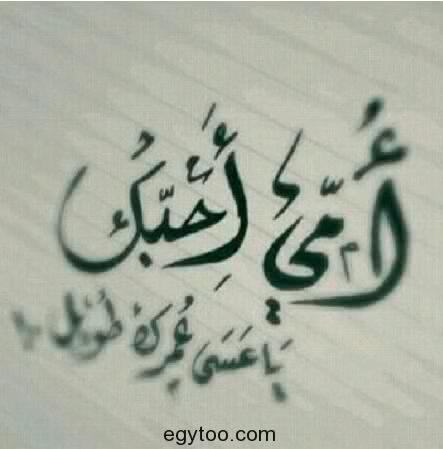 أُمّي أُحِبُّك
يَا عَسَى عُمرِكْ طُوِيل
egytoo.com